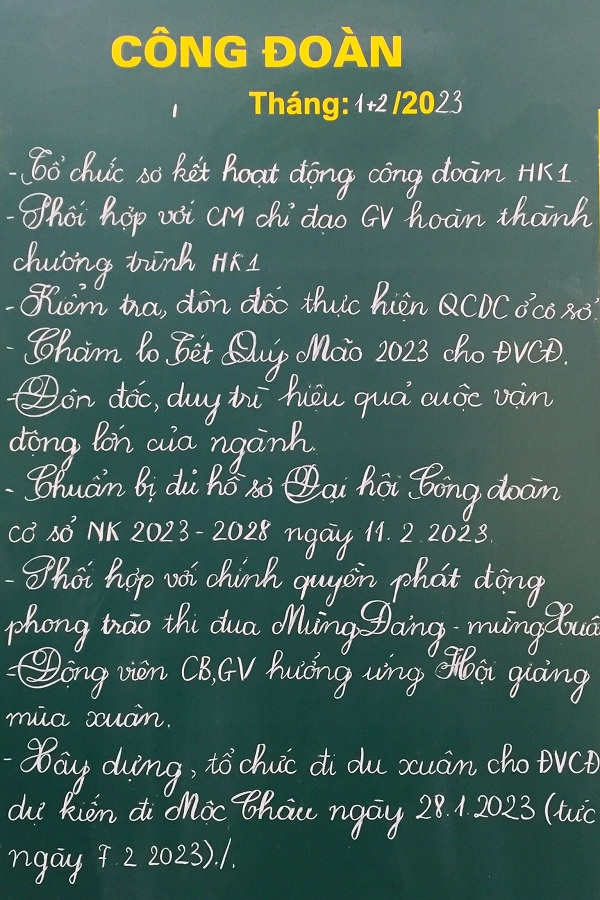 CÔNG ĐOÀN
Tháng: 1+2/2023
- Tổ chức sơ kết hoạt động công đoàn HK1
- Phối hợp với CM chỉ đạo GV hoàn thành
chương trình HK1
- Kiểm tra, đôn đốc thực hiện QCDC ở cơ sở.
- Chăm lo Tết Quý Mão 2023 cho ĐVCĐ.
- Đôn đốc, duy trì hiệu quả cuộc vận
động lớn của ngành.
- Chuẩn bị đủ hồ sơ Đại hội Công đoàn
cơ sở NK 2023-2028 ngày 11.2.2023.
- Phối hợp với chính quyền phát động
phong trào thi đua Mừng Đảng - mừng Xuâ
- Động viên CB,GV hưởng ứng Hội giảng
mùa xuân.
- Xây dựng, tổ chức đi du xuân cho ĐVCĐ
dự kiến đi Mộc Châu ngày 28.1.2023 (tức
ngày 7.2 2023)./.